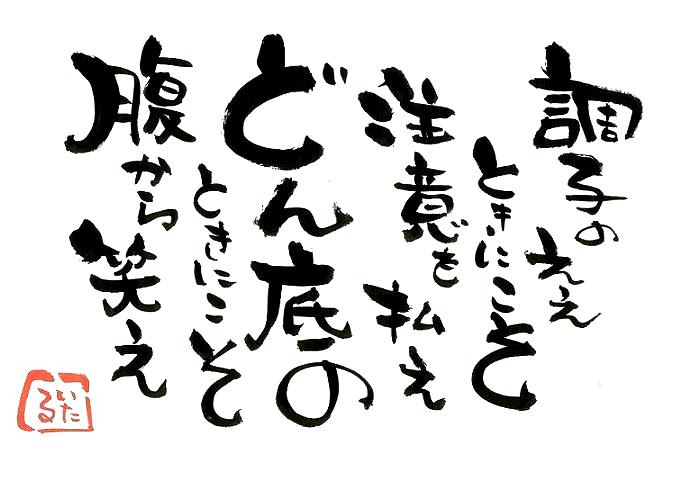 調子のええ
ときにこそ
注意を払え
どん底の
ときにこそ
腹から笑え
いたる